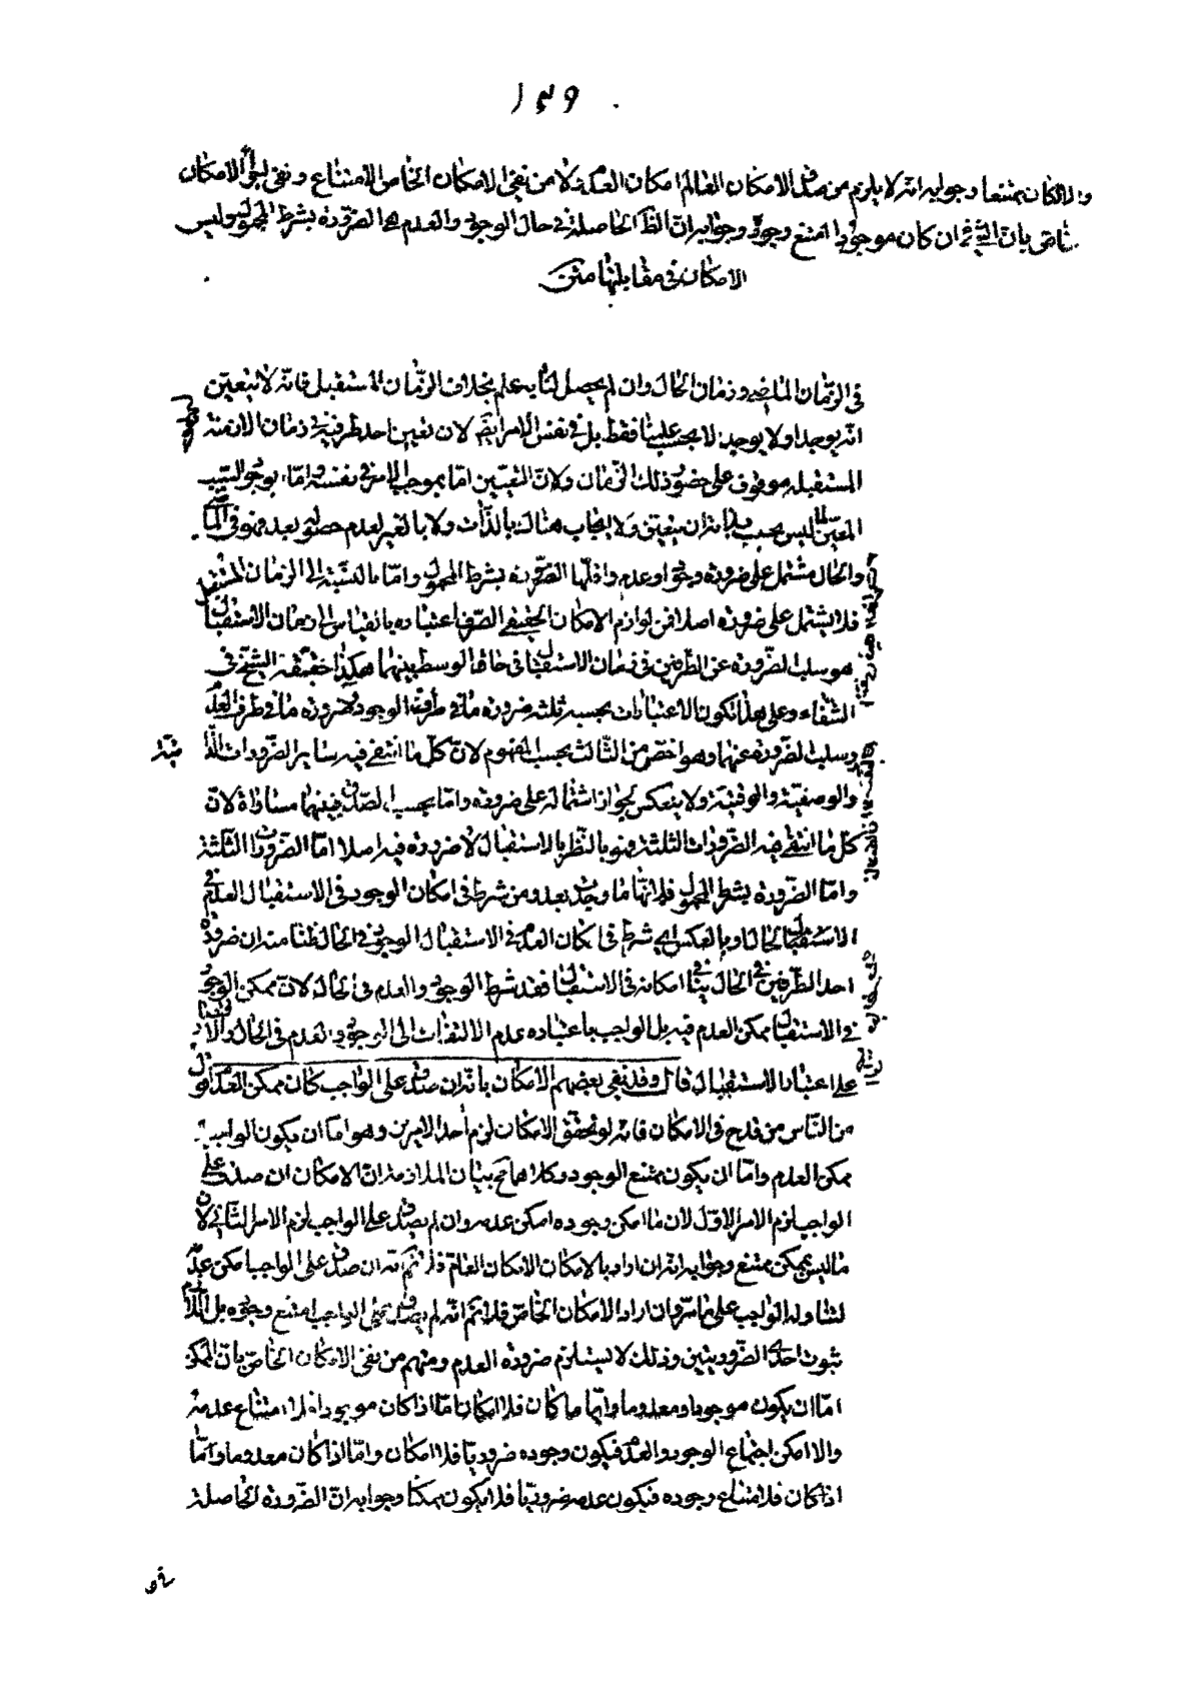 ١٣٩
والا لكان ممتنعا وجوابه انه لا يلزم من صدق الامكان العام امكان العدم ولا من نفى الامكان الخاص الامتناع ونفى الامكان
الخاص بان الشئ ان كان موجودا امتنع وجوابه ان الضرورة الحاصلة فى حال الوجود والعدم هى الضرورة بشرط المحمول وليس
الامكان فى مقابلتها متن
فى الزمان الماضى وزمان الحال وان لم يحصل لنا به علم بخلاف الزمان المستقبل فانه لا يتعين
انه يوجد او لا يوجد لا بحسب علمنا فقط بل فى نفس الامر ايضا لان تعين احد طرفيه فى زمان الازمنة
المستقبلة موقوف على حضور ذلك الزمان ولان التعيين اما بموجب الامر فى نفسه واما بوجود السبب
المعين ليس يجب ان يتعين ولا ايجاب هناك بالذات ولا بالغير لعدم حصوله بعد فهو فى الماضى
والحال مشتمل على ضرورة وجود او عدم واقلها الضرورة بشرط المحمول واما بالنسبة الى الزمان المستقبل
فلا يشتمل على ضرورة اصلا فمن لوازم الامكان الحقيقى الصرف اعتباره بالقياس الى زمان الاستقبال
هو سلب الضرورة عن الطرفين فى زمان الاستقبال فى حاق الوسط بينهما هكذا حققه الشيخ فى
الشفاء وعلى هذا تكون الاعتبارات بحسبه ثلثة ضرورة ما فى طرف الوجود وضرورة ما فى طرف العدم
وسلب الضرورة عنهما وهو اخص من الثالث بحسب المفهوم لان كل ما انتفى فيه ساير الضرورات الذاتية
والوصفية والوقتية ولا ينعكس لجواز اشتماله على ضرورة واما بحسب الصدق فبينهما مساواة لان
كل ما انتفى فيه الضرورات الثلثة فهو بالنظر بالاستقبال لا ضرورة فيه اصلا اما الضرورات الثلثة
واما الضرورة بشرط المحمول فلانها ما وجدت بعد ومن شرط فى امكان الوجود فى الاستقبال العدم فى
الحال وبالعكس اى شرط فى امكان العدم فى الاستقبال الوجود فى الحال ظنا منه ان ضرورة
احد الطرفين فى الحال ينافى امكانه فى الاستقبال فقد شرط الوجود والعدم فى الحال لان ممكن الوجود
فى الاستقبال ممكن العدم فيه بل الواجب باعتباره عدم الالتفات الى الوجود والعدم فى الحال والاقتصار
على اعتبار الاستقبال قال وقد نفى بعضهم الامكان بانه ان صدق على الواجب كان ممكن العدم اقول
من الناس من قدح فى الامكان فانه لو تحقق الامكان لزم احد الامرين وهو اما ان يكون الواجب
ممكن العدم واما ان يكون ممتنع الوجود وكلاهما مح بيان الملازمة ان الامكان ان صدق على
الواجب لزم الامر الاول لان ما امكن وجوده امكن عدمه وان لم يصدق على الواجب لزم الامر الثانى لان
ما ليس بممكن ممتنع وجوابه انه ان اراد بالامكان الامكان العام فلا نم انه ان صدق على الواجب امكن عدمه
لتناوله الواجب على ما مر وان اراد الامكان الخاص فلا نم انه لم يصدق على الواجب امتنع وجوده بل اللازم
ثبوت احدى الضرورتين وذلك لا يستلزم ضرورة العدم ومنهم من نفى الامكان الخاص بان الممكن
اما ان يكون موجودا ومعدوما وايا ما كان فلا امكان اما اذا كان موجودا فلامتناع عدمه
والا امكن اجتماع الوجود والعدم فيكون وجوده ضروريا فلا امكان واما اذا كان معدوما واما
اذا كان فلامتناع وجوده فيكون عدمه ضروريا فلا يكون ممكنا وجوابه ان الضرورة الحاصلة
فى